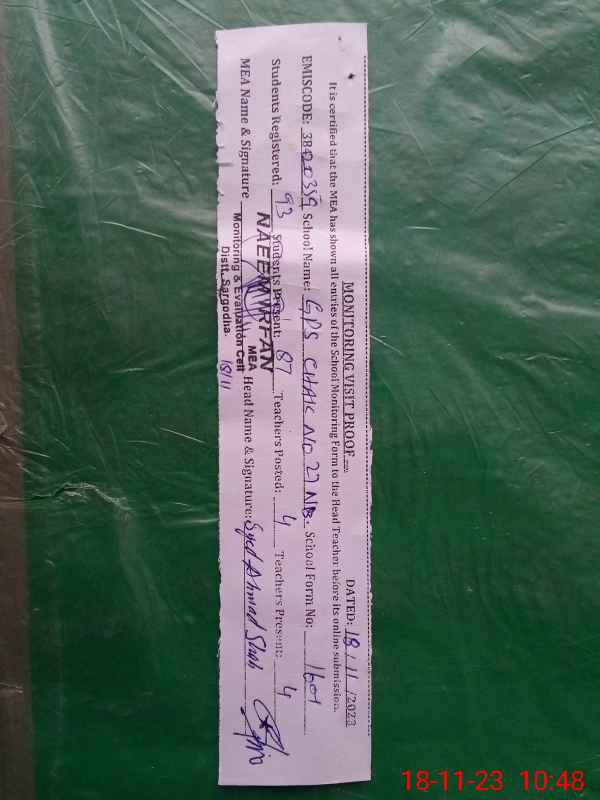 MONITORING VISIT PROOF DATED: 18/11/2023
It is certified that the MEA has shown all entries of the School Monitoring Form to the Head Teacher before its online submission.
EMISCODE: School Name: GPS CHAK NO 27 NB. School Form No: 1601
Students Registered: 93 Students Present: 87 Teachers Posted: 4 Teachers Present: 4
MEA Name & Signature Head Name & Signature: Syed Ahmad Shah
NAEEM IRFAN
MEA
Monitoring & Evaluation Cell
Distt. Sargodha.
18/11
18-11-23 10:48